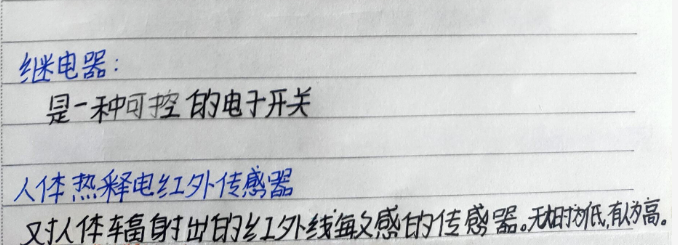 继电器:
是一种可控的电子开关
人体热释电红外传感器
对人体辐射出的红外线每文感的传感器。无人时为低,有人为高。